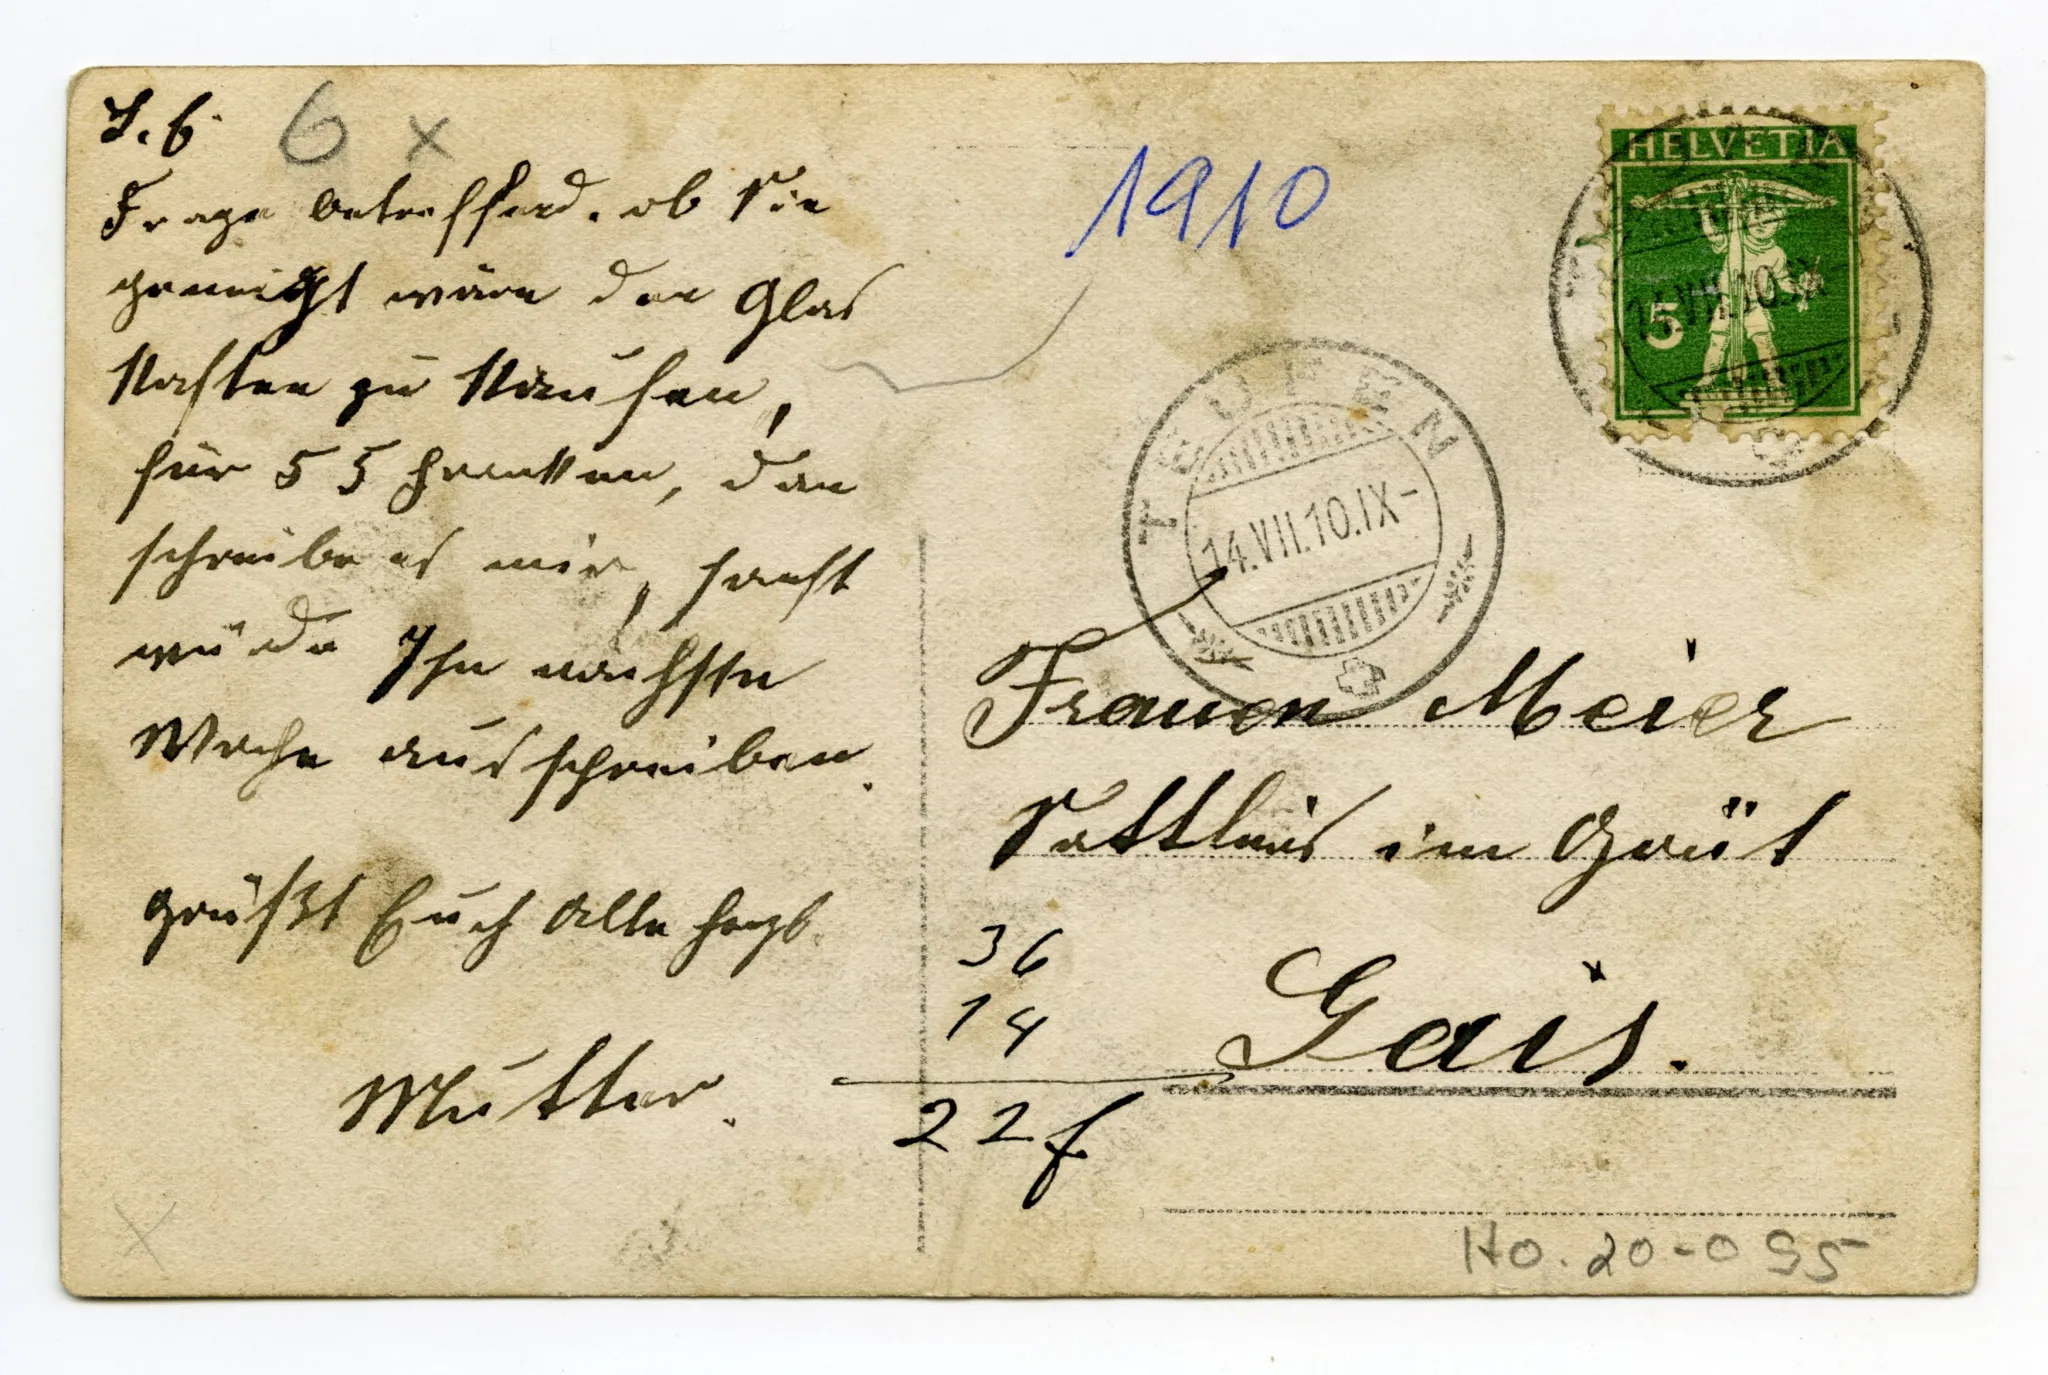 J. b.
6 x
Frage betreffend. ob Sie
geneigt wäre der Glas
Kasten zu Kaufen,
für 55 Franken, dan
schreibe es mir, sonst
wüde Ihn nächste
Woche ausschreiben.
grüßt Euch Alle
Mutter.
1910
HELVETIA
5
14.VII.10.IX
TEUFEN
14.VII.10.IX-
Frauen Meier
Sattleris im Grüt
Gais.
36
14
22 f
HO. 20-095